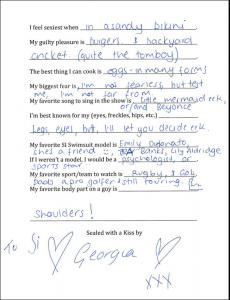 I feel sexiest when in a sandy bikini
My guilty pleasure is burgers & backyard
cricket (quite the tomboy)
The best thing I can cook is eggs - in many forms
My biggest fear is I'm not fearless, but test
me, I'm not far from.
My favorite song to sing in the shower is little mermaid eek,
or/and Beyonce
I'm best known for my (eyes, freckles, hips, etc.)
Legs, eyes, but, I'll let you decide eek.
My favorite SI Swimsuit model is Emily Didonato,
she's a friend :), Banks, Lily Aldridge
If I weren't a model, I would be a psychologist, or
sports star
My favorite sport/team to watch is Rugby, & Golf,
dad's a pro golfer & still touring.
My favorite body part on a guy is
shoulders!
Sealed with a Kiss by
To Si Georgia
xxx